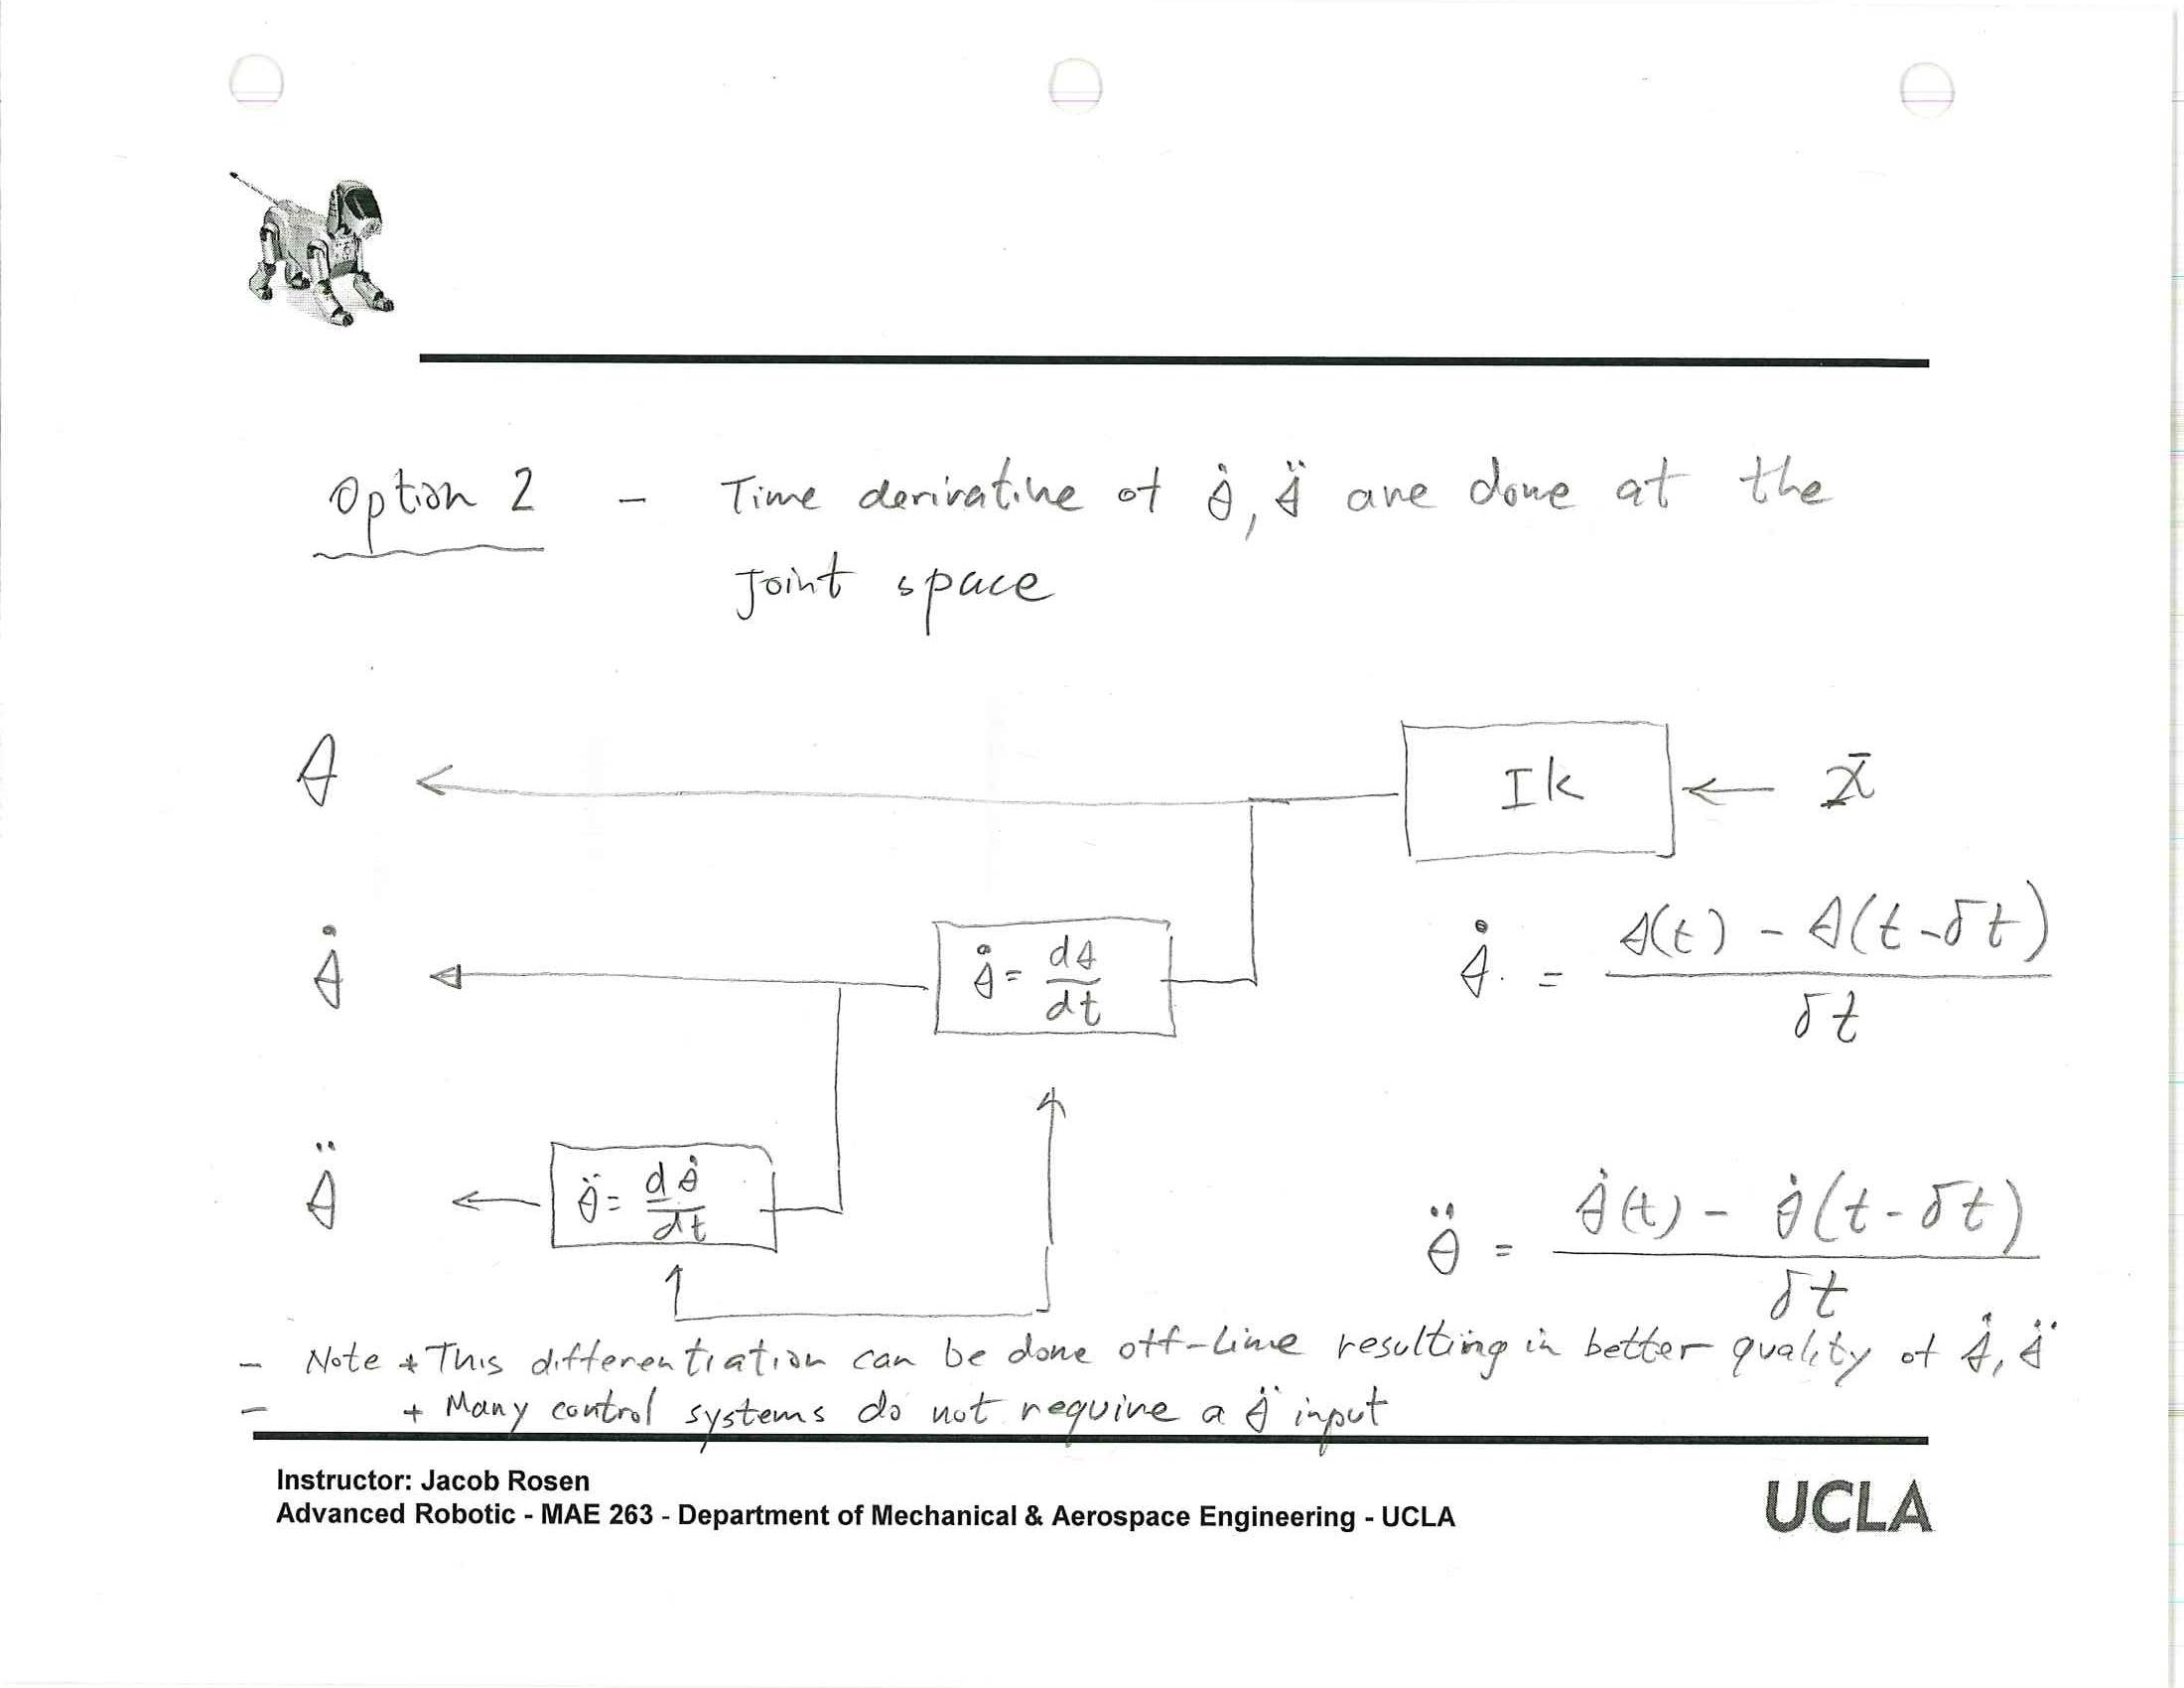 Option 2 - Time derivative of θ̇, θ̈ are done at the
Joint space
θ ← Ik ← X̄
θ̇ ← θ̇ = dθ/dt
θ̇ = (θ(t) - θ(t-δt))/δt
θ̈ ← θ̈ = dθ̇/dt
θ̈ = (θ̇(t) - θ̇(t-δt))/δt
- Note * This differentiation can be done off-line resulting in better quality of θ̇, θ̈
- + Many control systems do not require a θ̈ input
Instructor: Jacob Rosen
Advanced Robotic - MAE 263 - Department of Mechanical & Aerospace Engineering - UCLA
UCLA